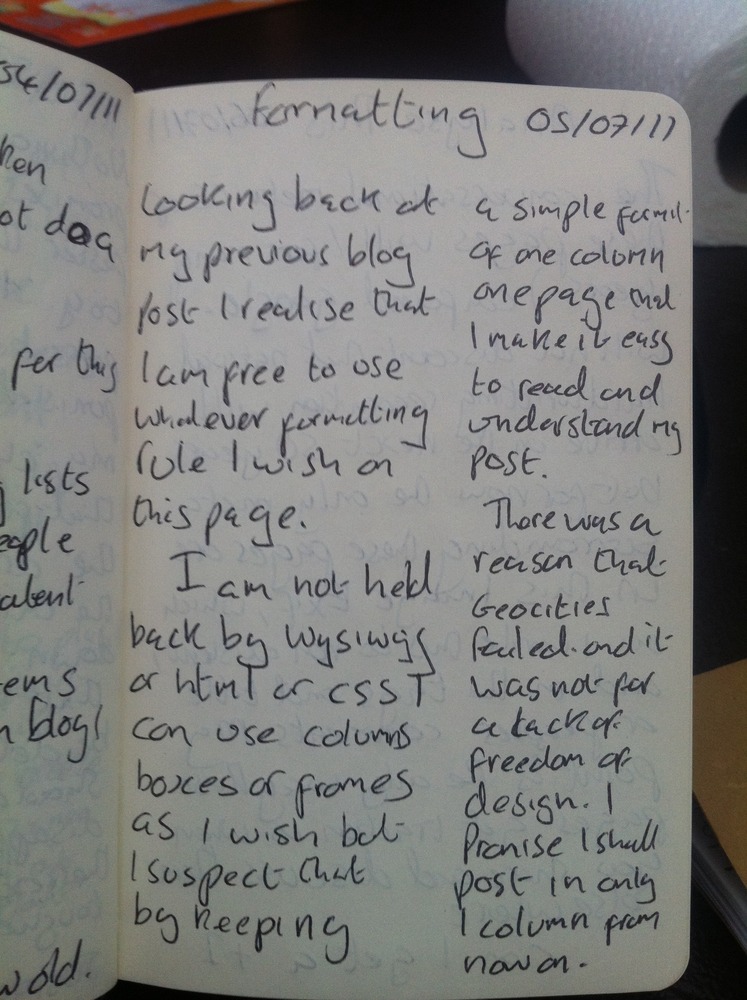 04/07/11
ken
ot dog
per this
lists
eople
alent
ems
n blog!
w old.
Formatting 05/07/11
Looking back at
my previous blog
post I realise that
I am free to use
whatever formatting
rule I wish on
this page.
I am not held
back by wysiwygs
or html or css I
can use columns
boxes or frames
as I wish but
I suspect that
by keeping
a simple format
of one column
one page that
I make it easy
to read and
understand my
post.
There was a
reason that
Geocities
failed. and it
was not for
a lack of
freedom of
design. I
Promise I shall
post in only
1 column from
now on.